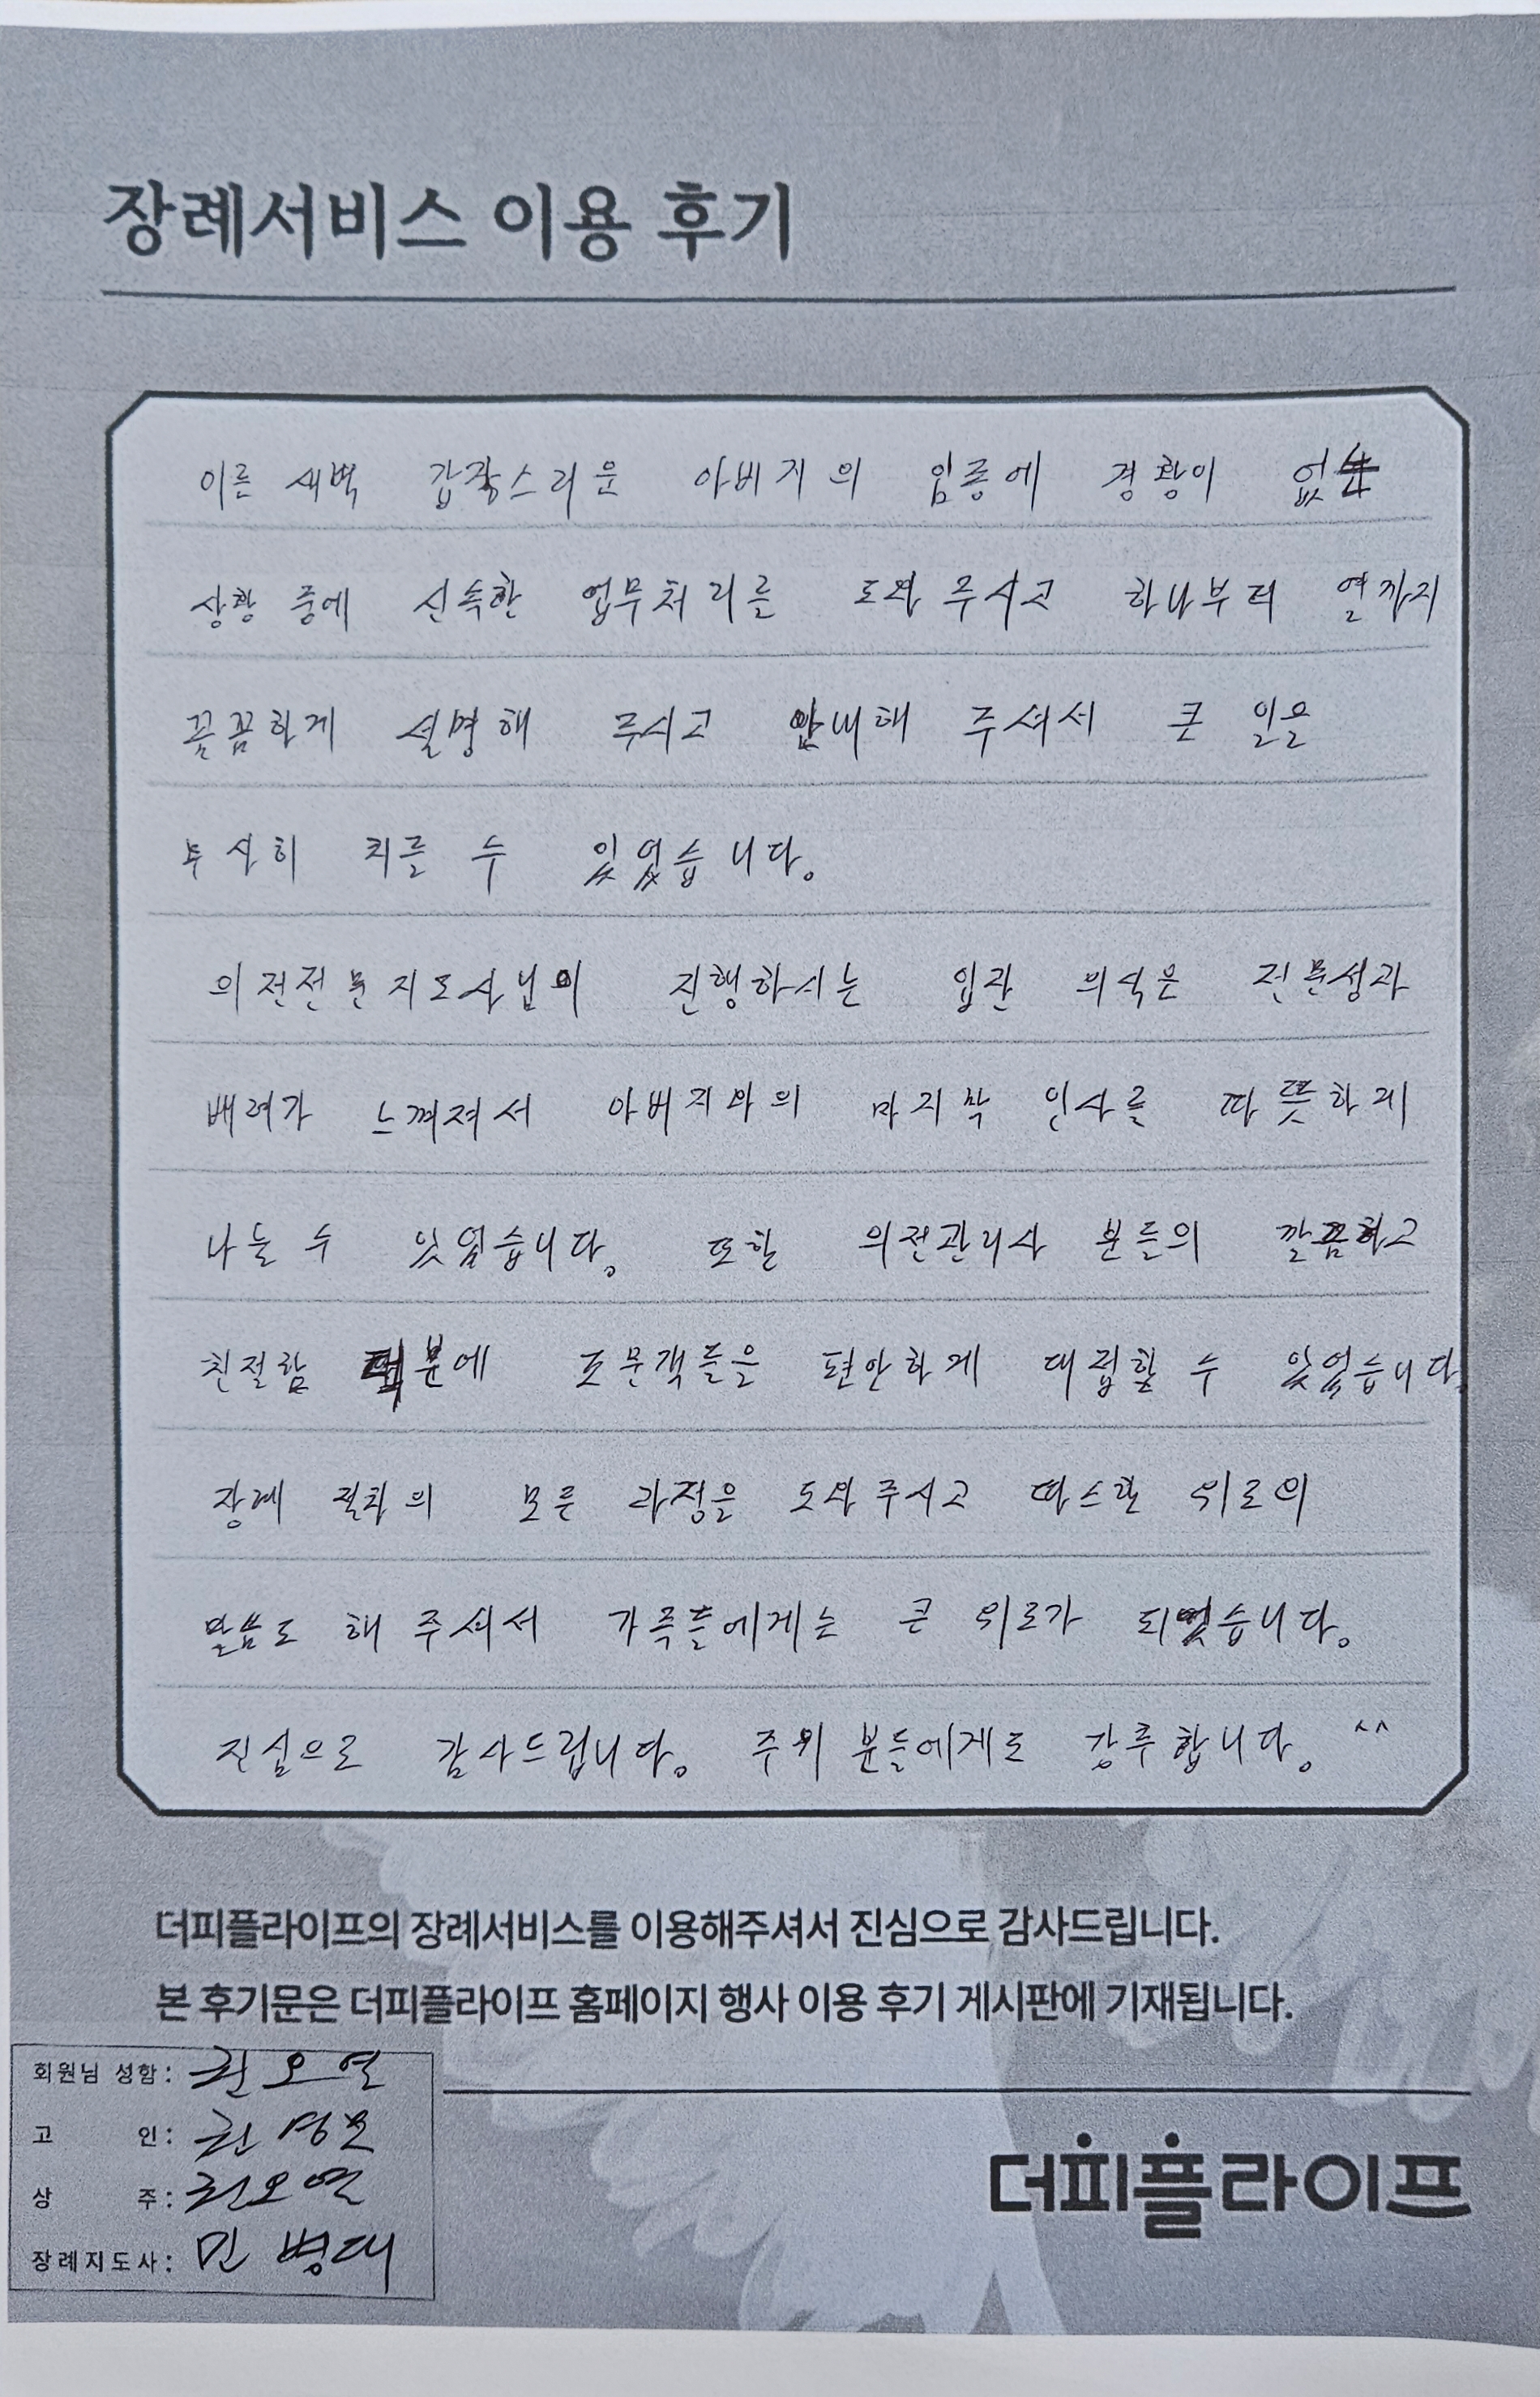 장례서비스 이용 후기
이른 새벽 갑작스러운 아버지의 임종에 경황이 없는
상황 중에 신속한 업무처리를 도와 주시고 하나부터 열까지
꼼꼼하게 설명해 주시고 안내해 주셔서 큰 일을
무사히 치를 수 있었습니다.
의전전문지도사님이 진행하시는 입관 의식은 전문성과
배려가 느껴져서 아버지와의 마지막 인사를 따뜻하게
나눌 수 있었습니다. 또한 의전관리사 분들의 깔끔하고
친절함 덕분에 조문객들을 편안하게 대접할 수 있었습니다.
장례 절차의 모든 과정을 도와주시고 따스한 위로의
말씀도 해 주셔서 가족들에게는 큰 위로가 되었습니다.
진심으로 감사드립니다. 주위 분들에게도 강추합니다. ^^
더피플라이프의 장례서비스를 이용해주셔서 진심으로 감사드립니다.
본 후기문은 더피플라이프 홈페이지 행사 이용 후기 게시판에 기재됩니다.
회원님 성함: 권오열
고 인: 권
상 주: 권오열
장례지도사: 민병대
더피플라이프